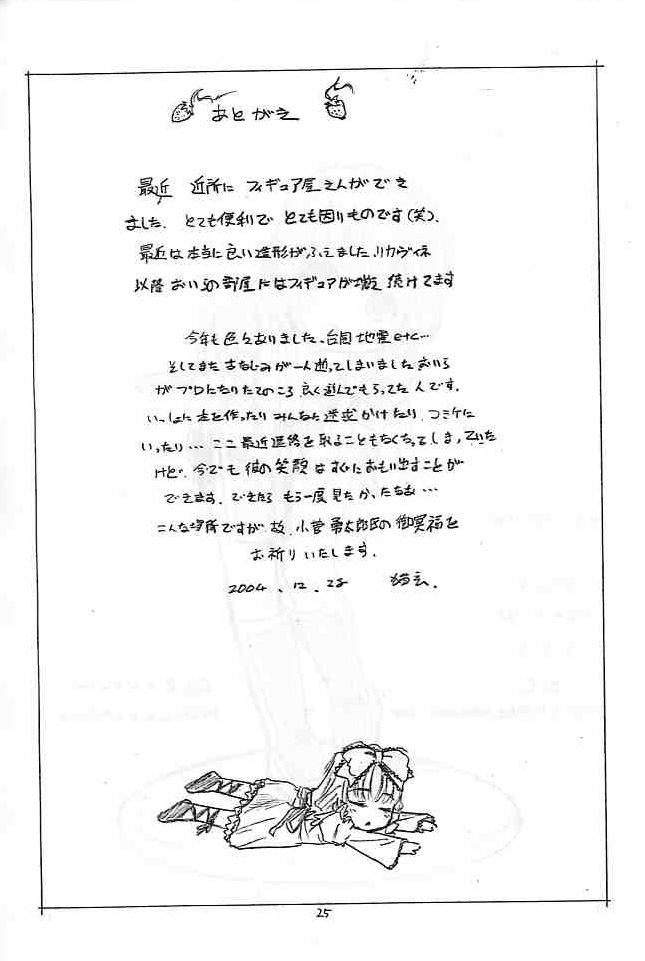 あとがき
最近 近所に フィギュア屋さんができ
ました. とても便利で とても困りものです(笑).
最近は本当に良い造形がふえました.リカヴィネ
以降 おいらの部屋にはフィギュアが増え続けてます
今年も色々ありました、台風 地震 etc…
そしてまた おさなじみが一人逝ってしまいました おいら
がプロになりたてのころ 良く遊んでもらってた人です.
いっしょに本を作ったり みんなに迷惑かけたり コミケに
いったり… ここ最近連絡を取ることもなくなってしまっていた
けど. 今でも 彼の笑顔はすぐにおもい出すことが
できます. できたら もう一度見たかったなあ…
こんな場所ですが 故. 小菅 勇太郎氏の御冥福を
お祈りいたします.
2004. 12. 28
25